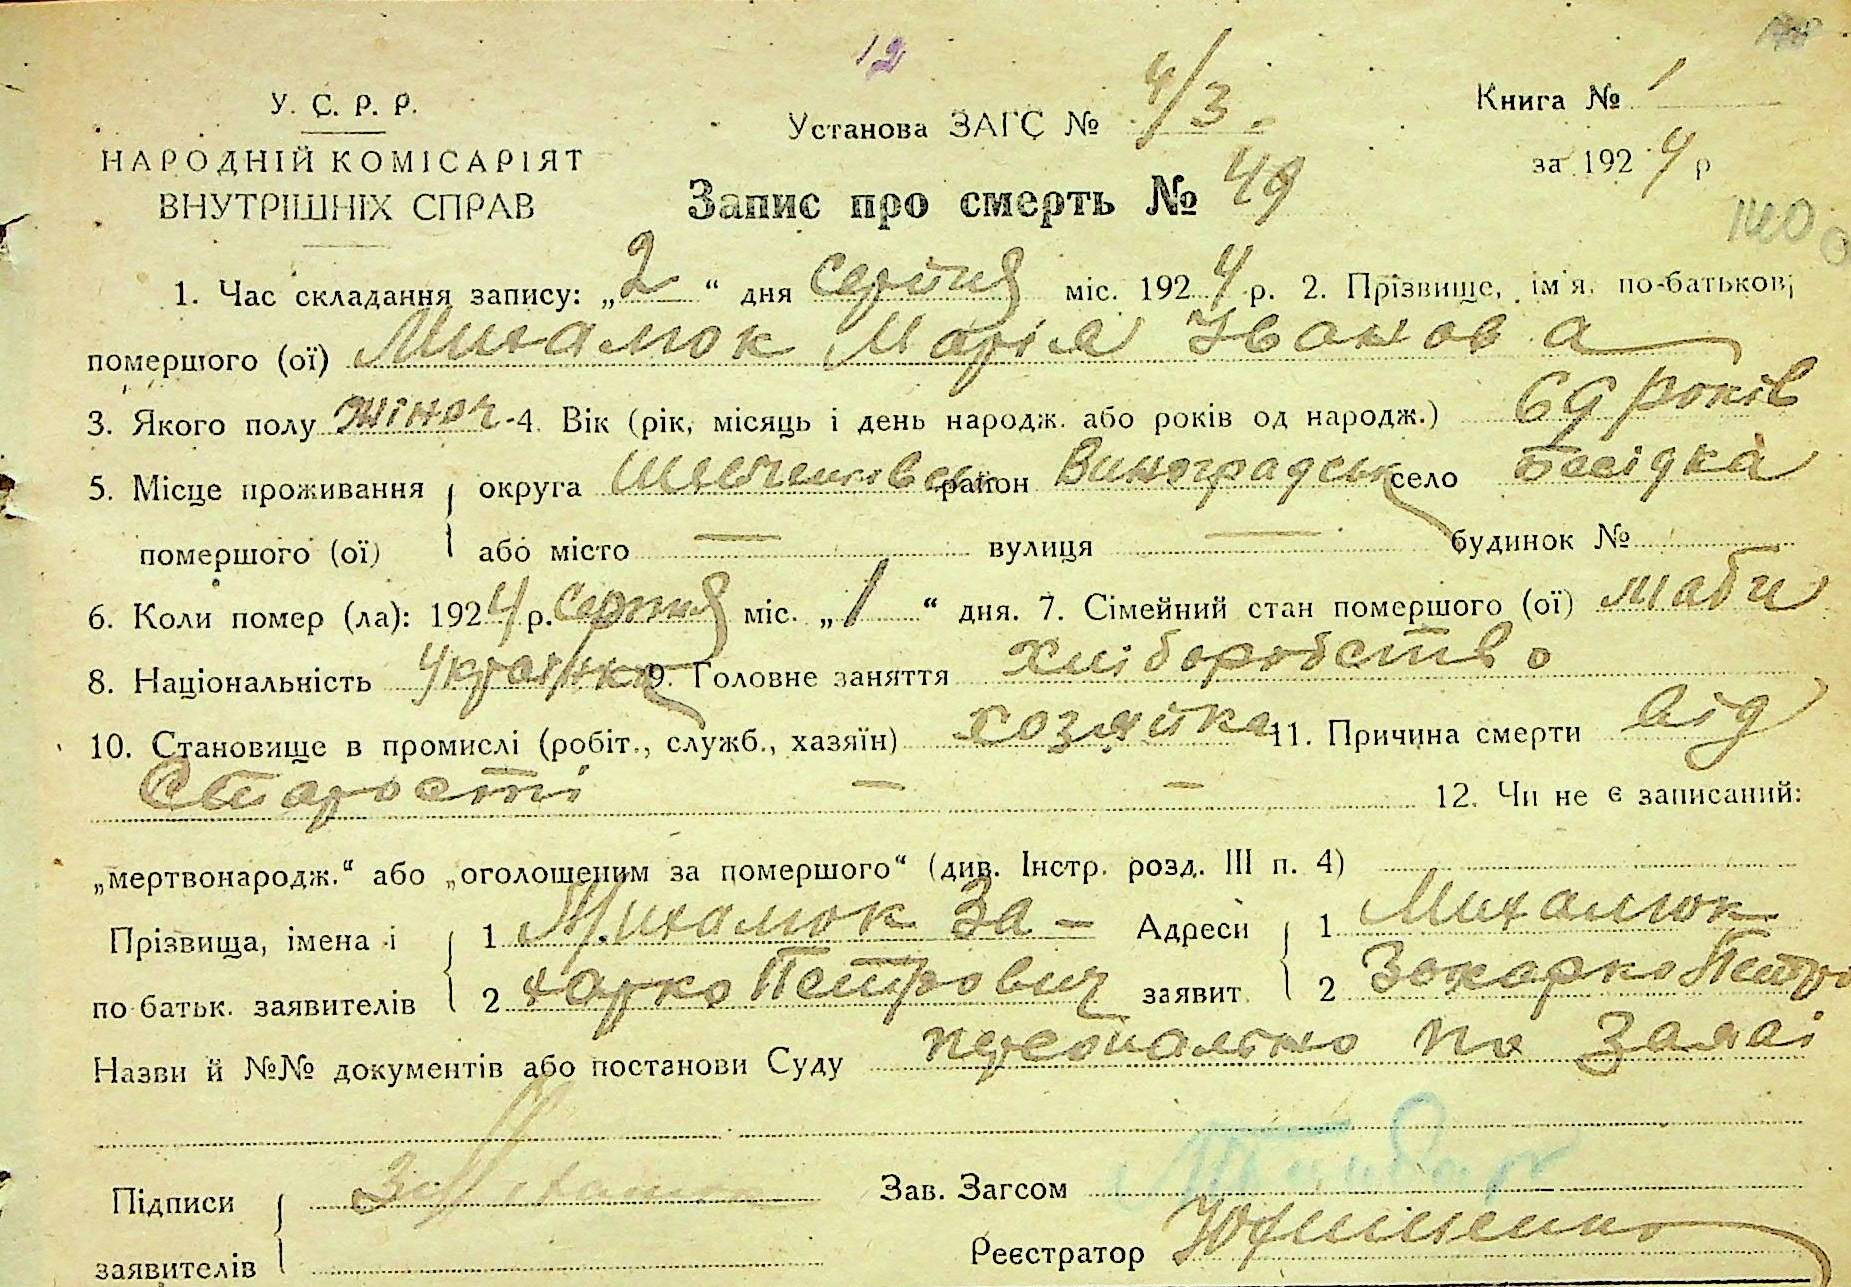 12
У. С. Р. Р.
НАРОДНІЙ КОМІСАРІЯТ
ВНУТРІШНІХ СПРАВ
Установа ЗАГС № 4/3.
Запис про смерть № 49
Книга № 1
за 1924 р
140
1. Час складання запису: „2“ дня серпня міс. 1924 р. 2. Прізвище, ім'я, по-батькові
помершого (ої) Михалюк Марія Іванова
3. Якого полу жіноч. 4. Вік (рік, місяць і день народж. або років од народж.) 69 років
5. Місце проживання округа Шевченківськ район Виноградськ село Босівка
помершого (ої) або місто — вулиця — будинок №
6. Коли помер (ла): 1924 р. серпня міс. „1“ дня. 7. Сімейний стан помершого (ої)
8. Національність Українка 9. Головне заняття хліборобство
10. Становище в промислі (робіт., служб., хазяїн) хозяйка 11. Причина смерти від
Старости — — 12. Чи не є записаний:
„мертвонародж.“ або „оголошеним за помершого“ (див. Інстр. розд. III п. 4)
Прізвища, імена і 1 Михалюк За- Адреси 1 Михалюк
по батьк. заявителів 2 харко Петрович заявит. 2 Захарко Петро
Назви й №№ документів або постанови Суду персонально по заяві
Підписи
заявителів
Зав. Загсом
Реєстратор